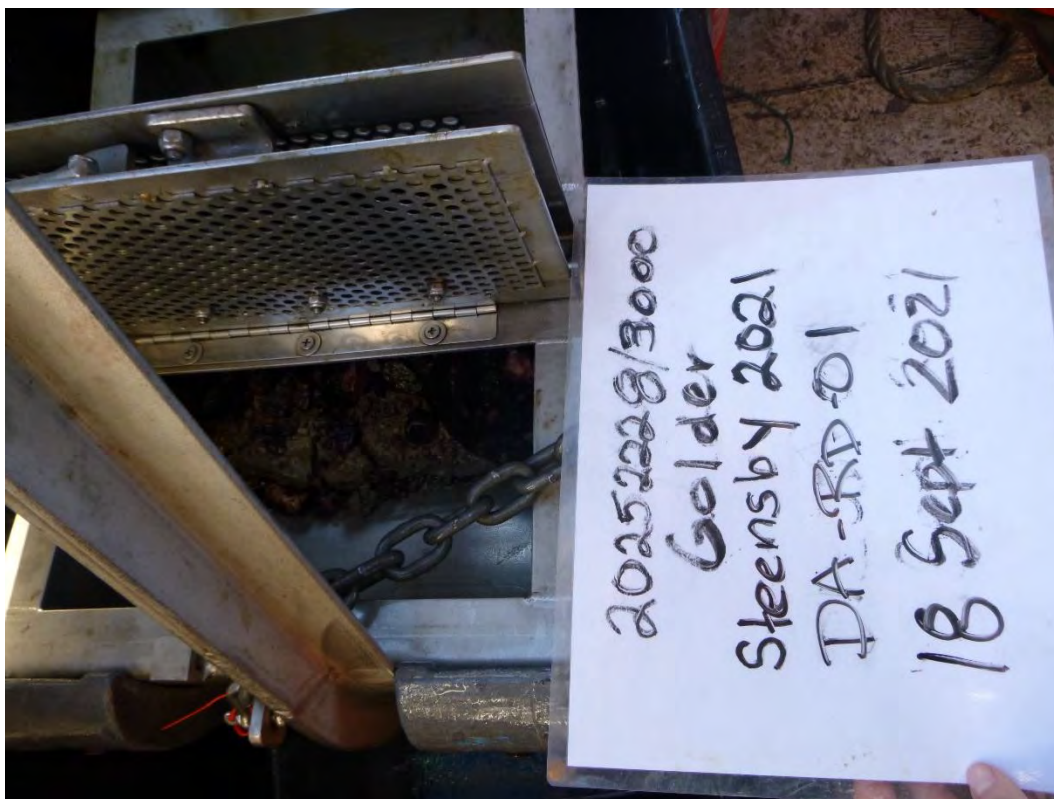 20252228/3000
Golder
Steensby 2021
DA-RD-01
18 Sept 2021